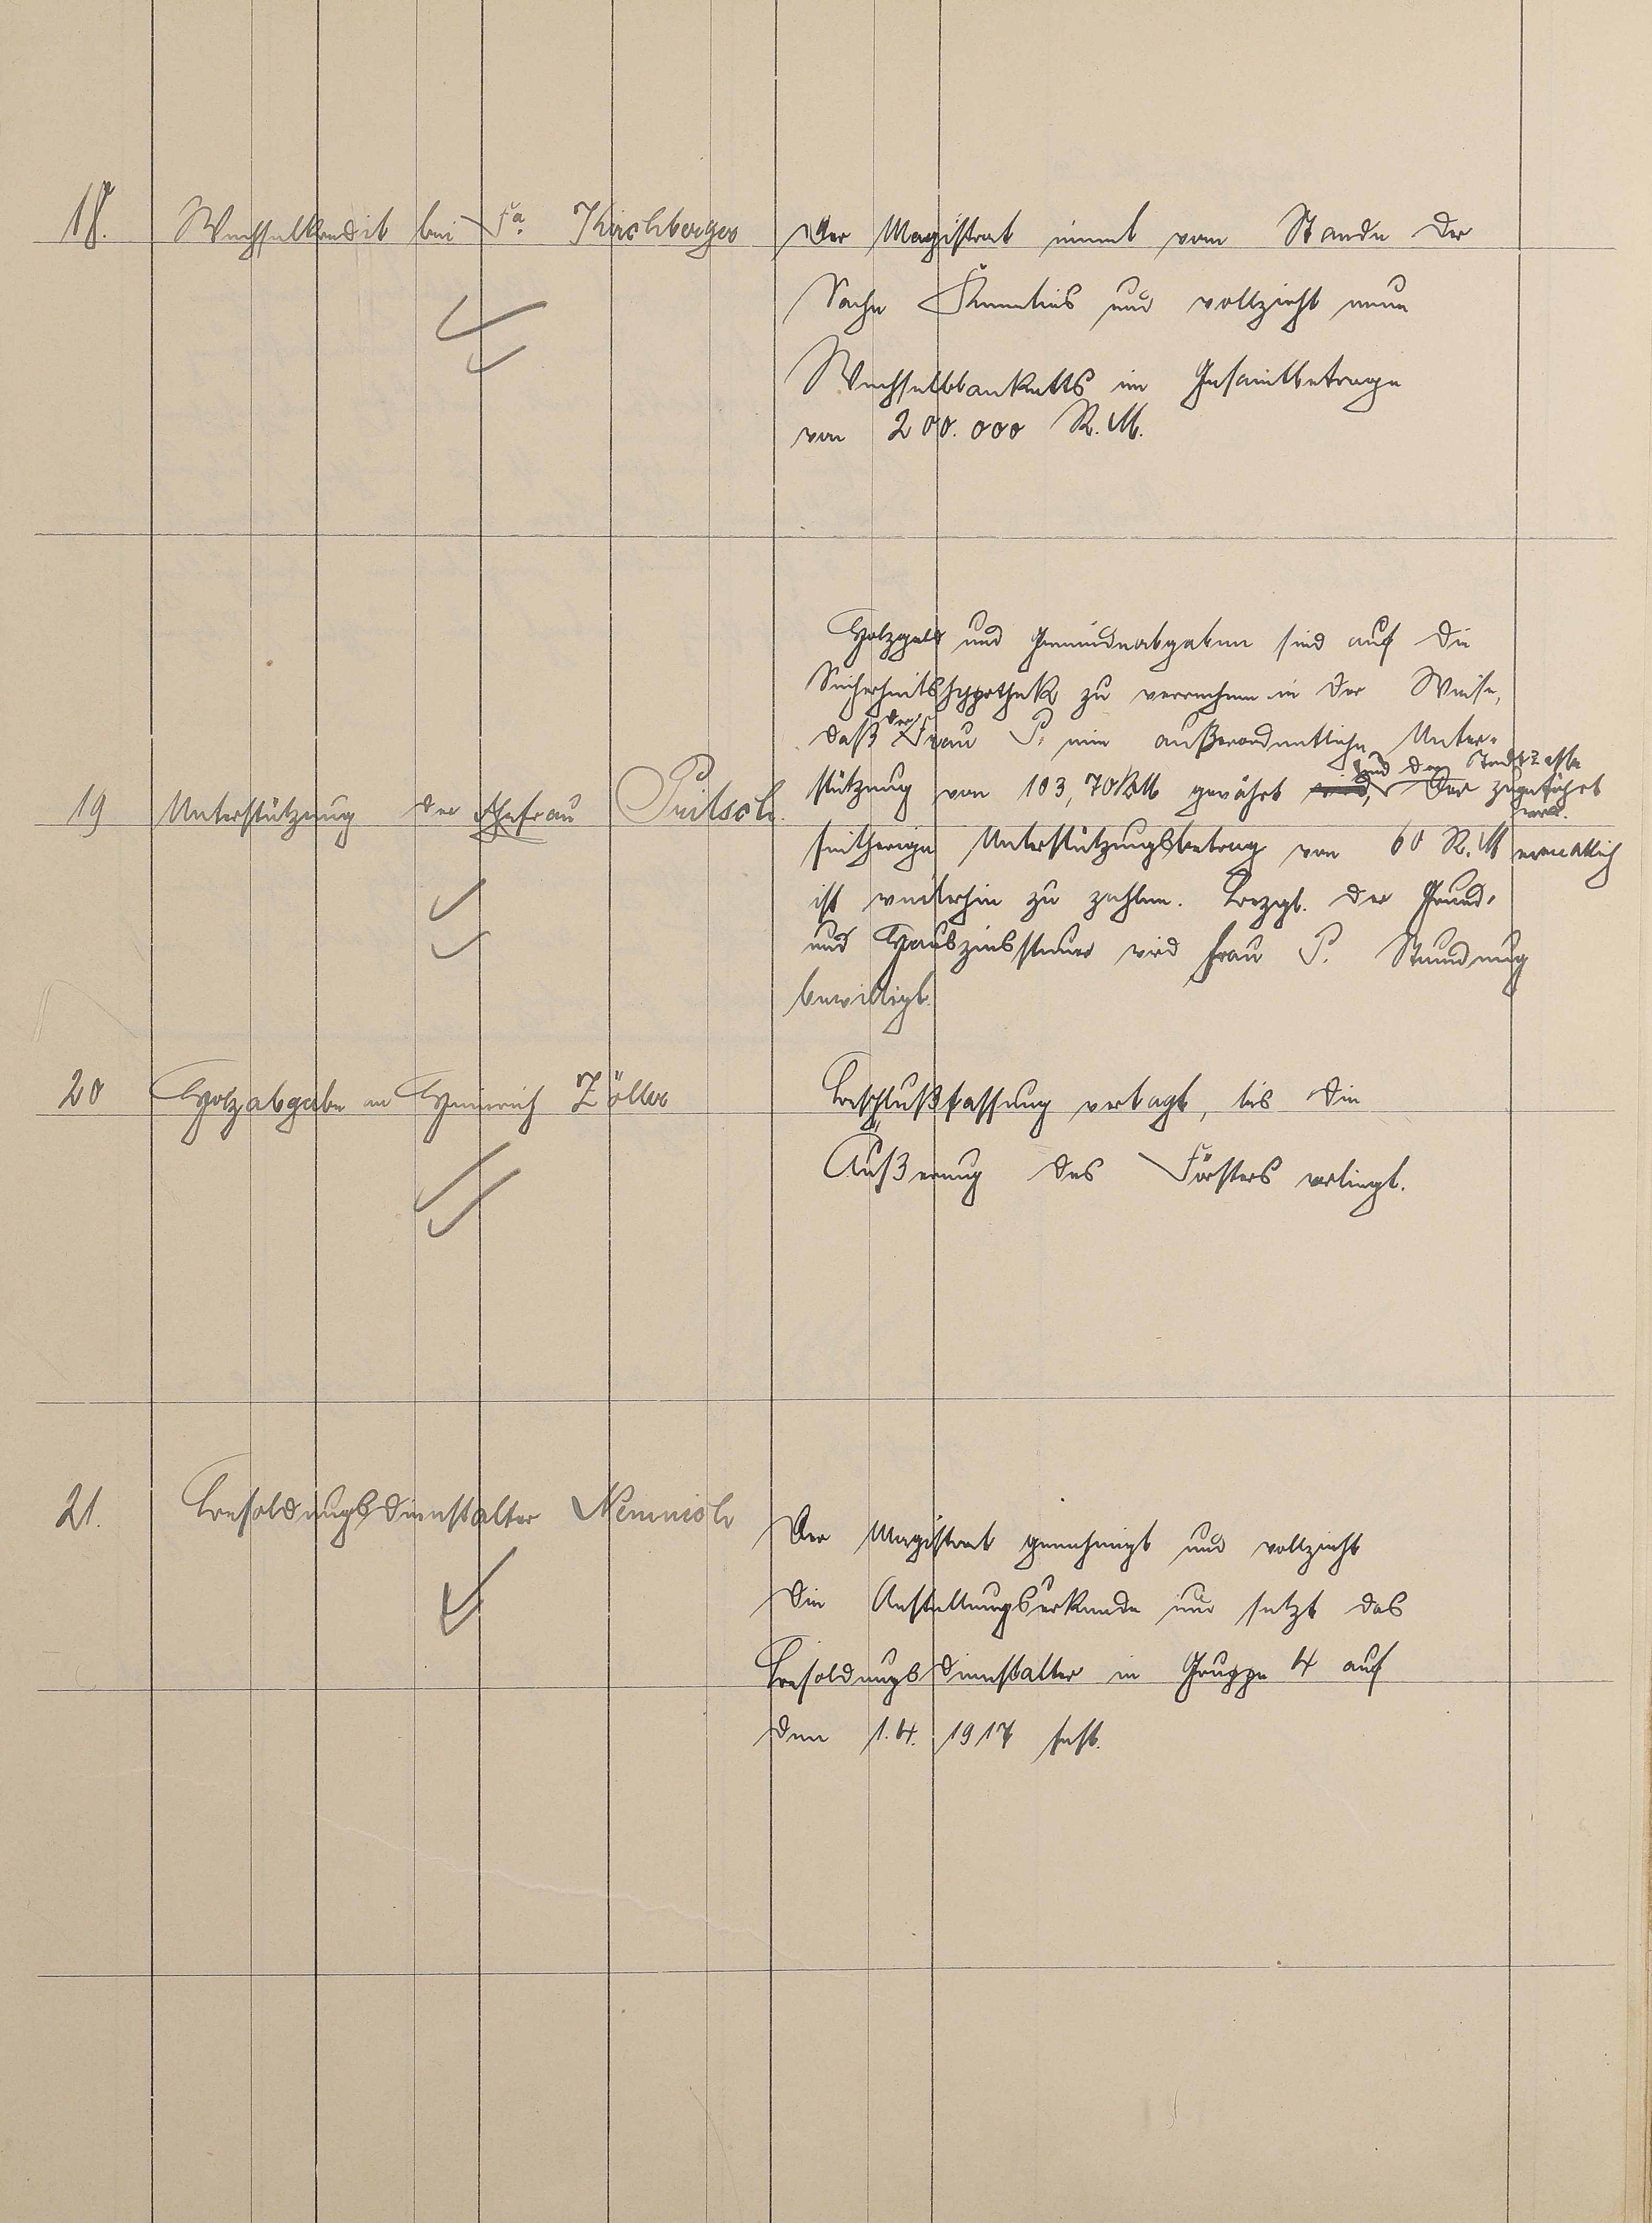 18. Wechselkredit bei Fa. Kirchberger
Der Magistrat nimmt vom Stande der
Sache Kenntnis und vollzieht neun
Wechselblanketts im Gesamtbetrage
von 200.000 R.M.
19 Unterstützung der Ehefrau Pritsch.
Holzgeld und Gemeindeabgaben sind auf die
Sicherheitshypothek zu verrechnen in der Weise,
daß der Frau P. eine außerordentliche Unter-
stützung von 103,70 RM gewährt wird, und der Stadtkasse zugeführt wird. Der
seitherige Unterstützungsbetrag von 60 R.M monatlich
ist weiterhin zu zahlen. Bezgl. der Grund-
und Hauszinssteuer wird Frau P. Stundung
bewilligt.
20 Holzabgabe an Heinrich Zöller
Beschlußfassung vertagt, bis die
Äußerung des Försters vorliegt.
21. Besoldungsdienstalter Nemnich
Der Magistrat genehmigt und vollzieht
die Anstellungsurkunde und setzt das
Besoldungsdienstalter in Gruppe 4 auf
den 1.4. 1917 fest.